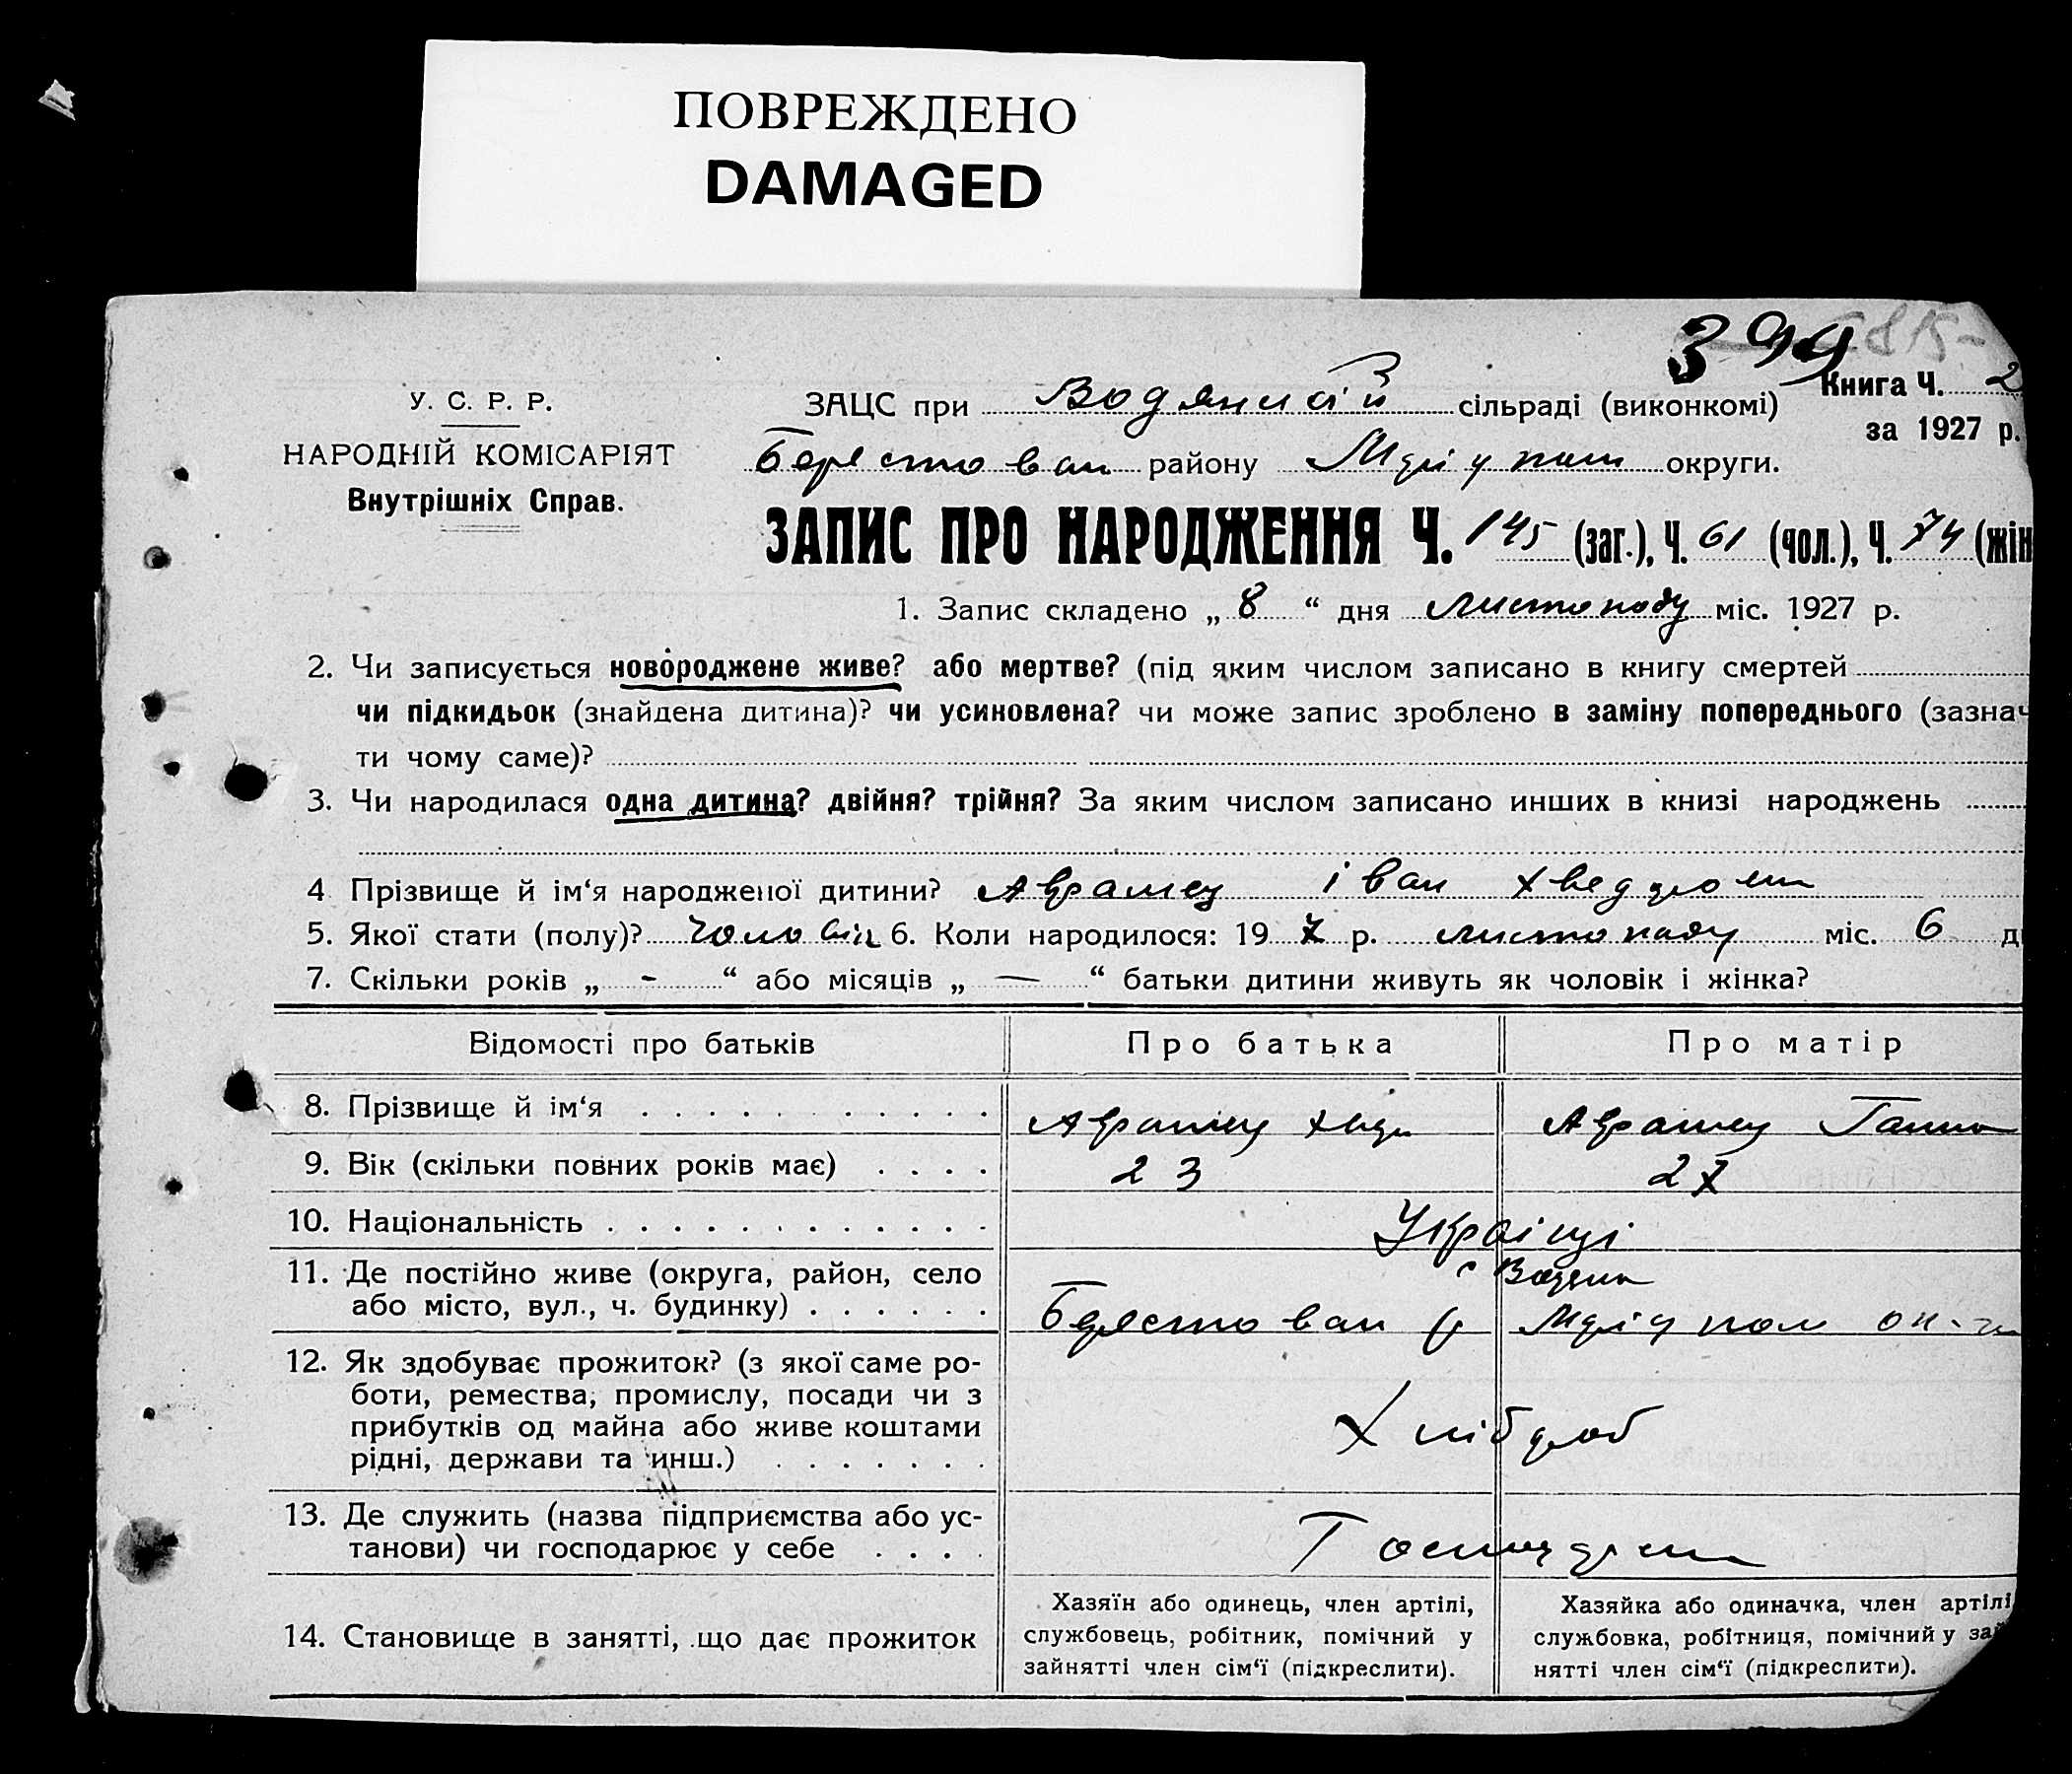 ПОВРЕЖДЕНО
DAMAGED
399
У. С. Р. Р.
НАРОДНІЙ КОМІСАРІЯТ
Внутрішніх Справ.
Книга Ч. 2
за 1927 р.
ЗАЦС при Водянській сільраді (виконкомі)
Берестован району Мріупол округи.
ЗАПИС ПРО НАРОДЖЕННЯ Ч. 145 (заг.), Ч. 61 (чол.), Ч. 74 (жін
1. Запис складено „ 8 “ дня листопаду міс. 1927 р.
2. Чи записується новороджене живе? або мертве? (під яким числом записано в книгу смертей
чи підкидьок (знайдена дитина)? чи усиновлена? чи може запис зроблено в заміну попереднього (зазнач
ти чому саме)?
3. Чи народилася одна дитина? двійня? трійня? За яким числом записано инших в книзі народжень
4 Прізвище й ім‘я народженої дитини? Аврамец іван
5. Якої стати (полу)? 6. Коли народилося: 19 7 р. листопаду міс. 6 д
7. Скільки років „ - “ або місяців „ — “ батьки дитини живуть як чоловік і жінка?
Відомості про батьків
Про батька
Про матір
8. Прізвище й ім‘я
Аврамец
Аврамец Ганна
9. Вік (скільки повних років має)
23
27
10. Національність
Українці
11. Де постійно живе (округа, район, село
або місто, вул., ч. будинку)
с Водяна
Берестован р Мріупол ок-
12. Як здобуває прожиток? (з якої саме ро-
боти, ремества, промислу, посади чи з
прибутків од майна або живе коштами
рідні, держави та инш.)
Хлібороб
13. Де служить (назва підприємства або ус-
танови) чи господарює у себе
14. Становище в занятті, що дає прожиток
Хазяїн або одинець, член артілі,
службовець, робітник, помічний у
зайнятті член сім‘ї (підкреслити).
Хазяйка або одиначка, член артілі
службовка, робітниця, помічний у зай
нятті член сім‘ї (підкреслити).